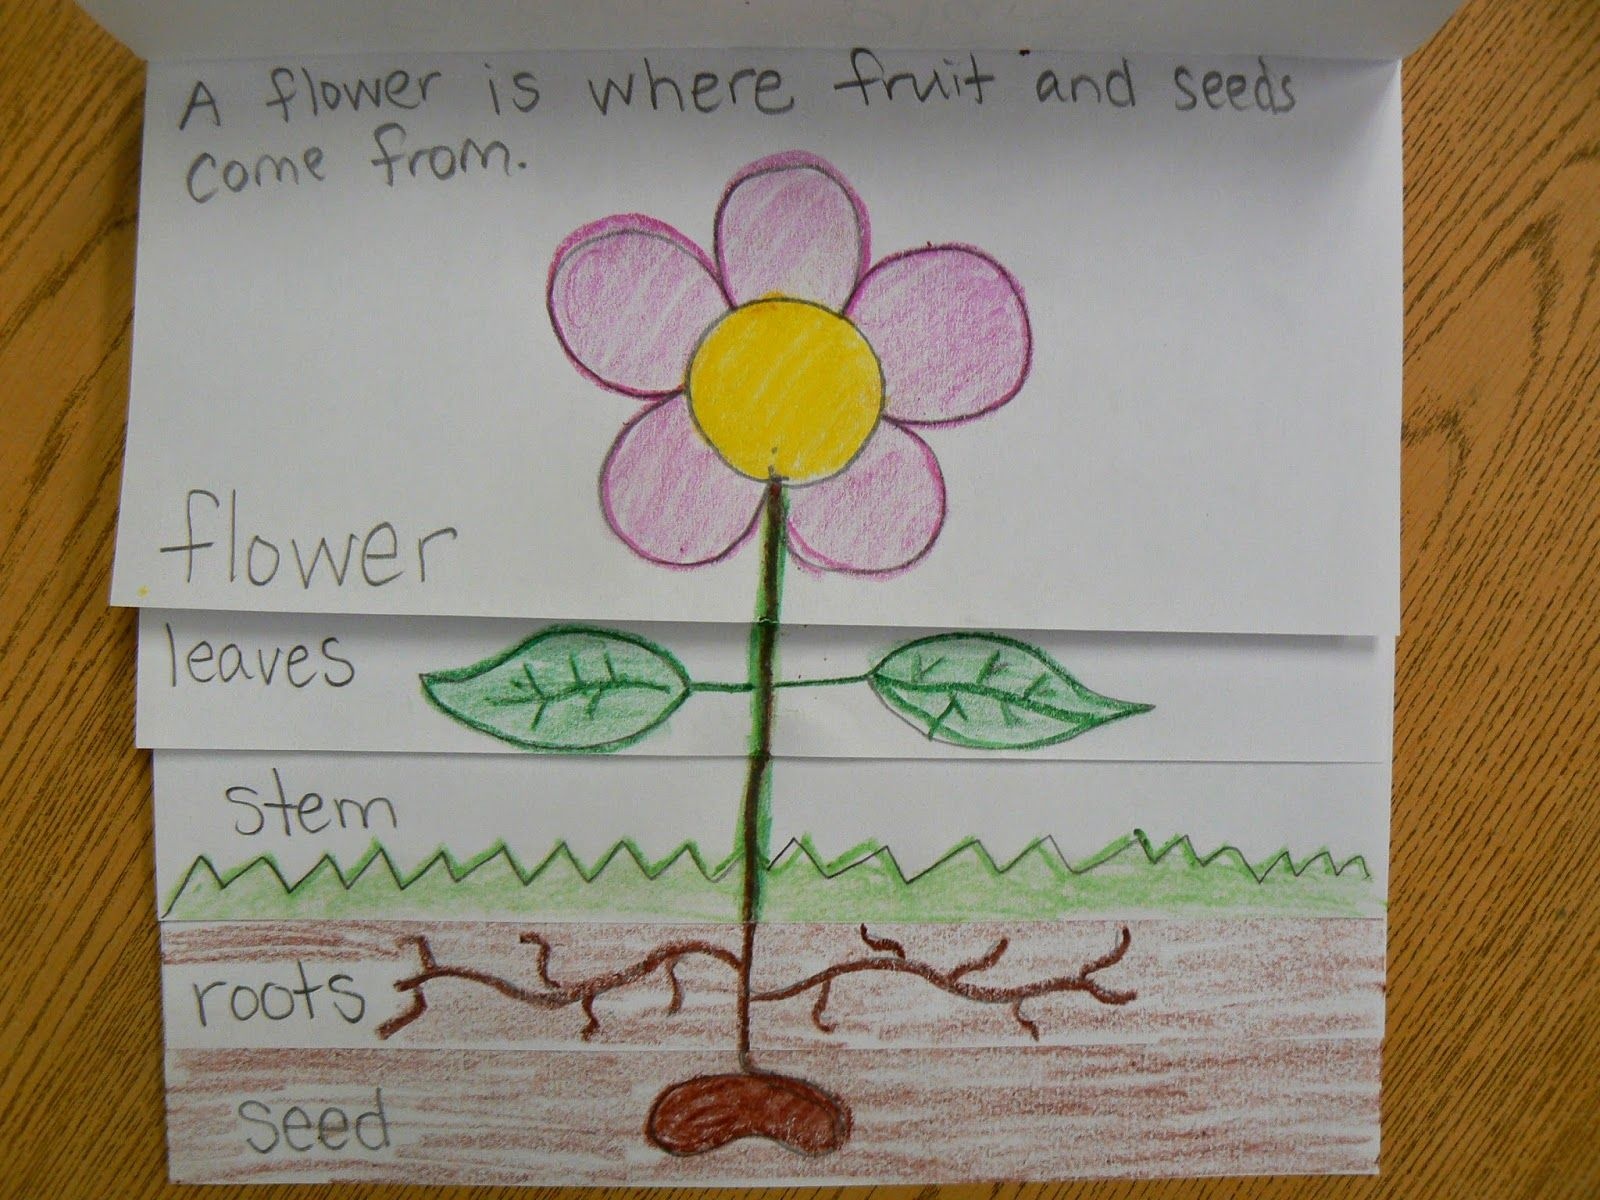 A flower is where fruit and seeds
come from.
flower
leaves
stem
roots
seed